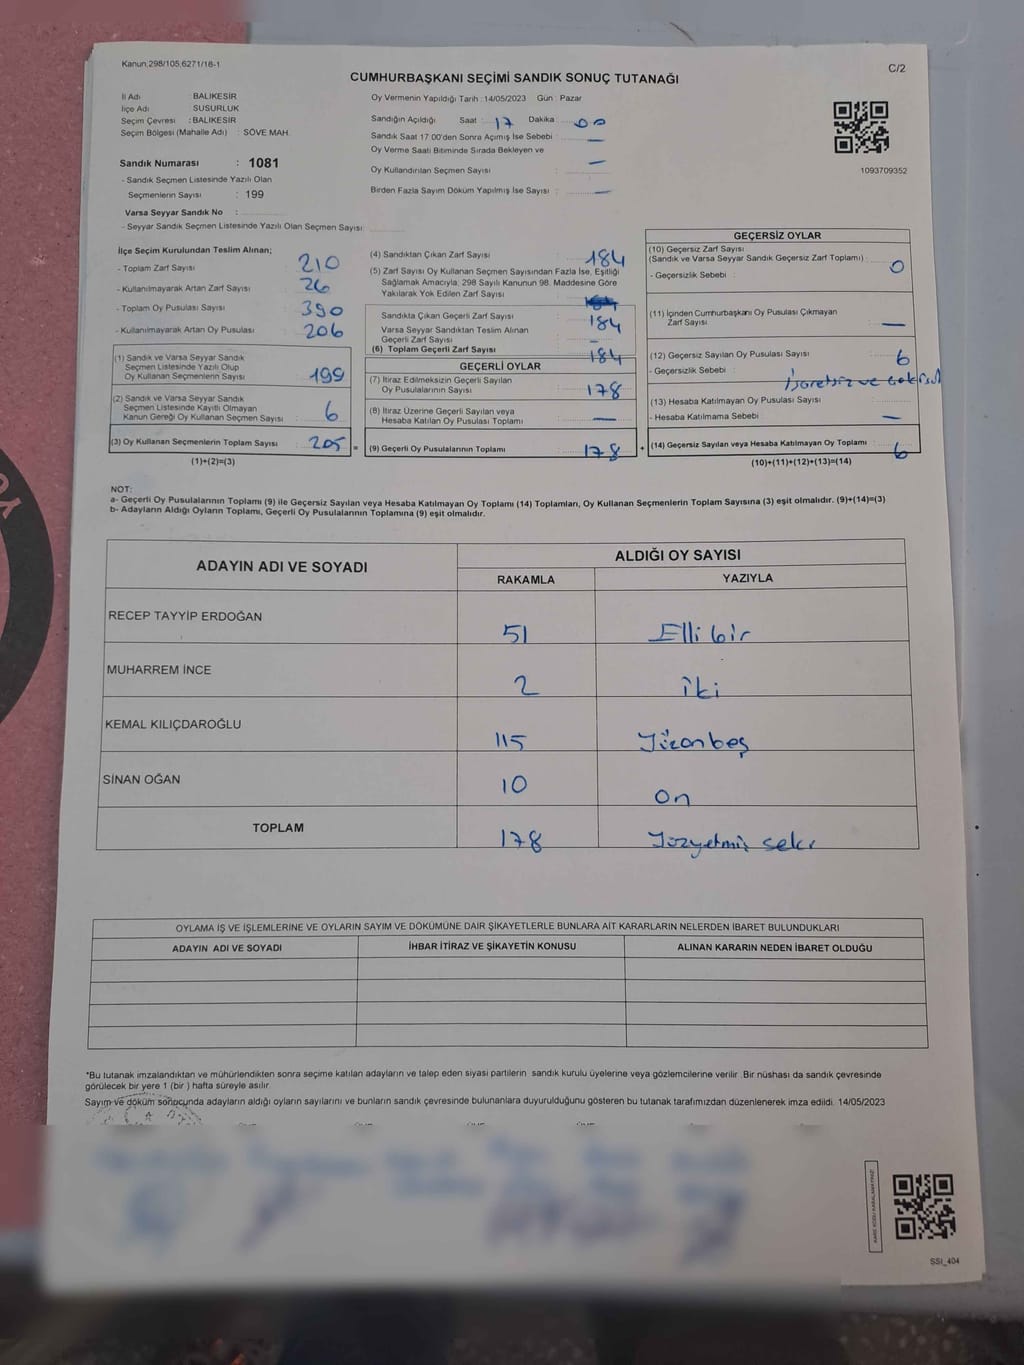 Kanun,298/105,6271/16-1
C/2
CUMHURBAŞKANI SEÇİMİ SANDIK SONUÇ TUTANAĞI
İl Adı : BALIKESİR
İlçe Adı : SUSURLUK
Seçim Çevresi : BALIKESİR
Seçim Bölgesi (Mahalle Adı) : SÖVE MAH.
Sandık Numarası : 1081
- Sandık Seçmen Listesinde Yazılı Olan
Seçmenlerin Sayısı : 199
Varsa Seyyar Sandık No :
- Seyyar Sandık Seçmen Listesinde Yazılı Olan Seçmen Sayısı:
Oy Vermenin Yapıldığı Tarih :14/05/2023 Gün : Pazar
Sandığın Açıldığı Saat : 17 Dakika : 00
Sandık Saat 17:00'den Sonra Açımış İse Sebebi : —
Oy Verme Saati Bitiminde Sırada Bekleyen ve
Oy Kullandırılan Seçmen Sayısı : —
Birden Fazla Sayım Döküm Yapılmış İse Sayısı : —
1093709352
İlçe Seçim Kurulundan Teslim Alınan;
- Toplam Zarf Sayısı : 210
- Kullanılmayarak Artan Zarf Sayısı : 26
- Toplam Oy Pusulası Sayısı : 390
- Kullanılmayarak Artan Oy Pusulası : 206
(1) Sandık ve Varsa Seyyar Sandık
Seçmen Listesinde Yazılı Olup
Oy Kullanan Seçmenlerin Sayısı : 199
(2) Sandık ve Varsa Seyyar Sandık
Seçmen Listesinde Kayıtlı Olmayan
Kanun Gereği Oy Kullanan Seçmen Sayısı : 6
(3) Oy Kullanan Seçmenlerin Toplam Sayısı : 205 =
(1)+(2)=(3)
(4) Sandıktan Çıkan Zarf Sayısı : 184
(5) Zarf Sayısı Oy Kullanan Seçmen Sayısından Fazla İse, Eşitliği
Sağlamak Amacıyla; 298 Sayılı Kanunun 98. Maddesine Göre
Yakılarak Yok Edilen Zarf Sayısı
Sandıkta Çıkan Geçerli Zarf Sayısı : 184
Varsa Seyyar Sandıktan Teslim Alınan
Geçerli Zarf Sayısı : —
(6) Toplam Geçerli Zarf Sayısı : 184
GEÇERLİ OYLAR
(7) İtiraz Edilmeksizin Geçerli Sayılan
Oy Pusulalarının Sayısı : 178
(8) İtiraz Üzerine Geçerli Sayılan veya
Hesaba Katılan Oy Pusulası Toplamı : —
(9) Geçerli Oy Pusulalarının Toplamı : 178 +
GEÇERSİZ OYLAR
(10) Geçersiz Zarf Sayısı
(Sandık ve Varsa Seyyar Sandık Geçersiz Zarf Toplamı) : 0
- Geçersizlik Sebebi :
(11) İçinden Cumhurbaşkanı Oy Pusulası Çıkmayan
Zarf Sayısı : —
(12) Geçersiz Sayılan Oy Pusulası Sayısı : 6
- Geçersizlik Sebebi : İşaretsiz ve
(13) Hesaba Katılmayan Oy Pusulası Sayısı :
- Hesaba Katılmama Sebebi : —
(14) Geçersiz Sayılan veya Hesaba Katılmayan Oy Toplamı : 6
(10)+(11)+(12)+(13)=(14)
NOT:
a- Geçerli Oy Pusulalarının Toplamı (9) ile Geçersiz Sayılan veya Hesaba Katılmayan Oy Toplamı (14) Toplamları, Oy Kullanan Seçmenlerin Toplam Sayısına (3) eşit olmalıdır. (9)+(14)=(3)
b- Adayların Aldığı Oyların Toplamı, Geçerli Oy Pusulalarının Toplamına (9) eşit olmalıdır.
ADAYIN ADI VE SOYADI
ALDIĞI OY SAYISI
RAKAMLA YAZIYLA
RECEP TAYYİP ERDOĞAN 51 Elli bir
MUHARREM İNCE 2 iki
KEMAL KILIÇDAROĞLU 115 Yüzonbeş
SİNAN OĞAN 10 on
TOPLAM 178 Yüzyetmiş sekz
OYLAMA İŞ VE İŞLEMLERİNE VE OYLARIN SAYIM VE DÖKÜMÜNE DAİR ŞİKAYETLERLE BUNLARA AİT KARARLARIN NELERDEN İBARET BULUNDUKLARI
ADAYIN ADI VE SOYADI İHBAR İTİRAZ VE ŞİKAYETİN KONUSU ALINAN KARARIN NEDEN İBARET OLDUĞU
*Bu tutanak imzalandıktan ve mühürlendikten sonra seçime katılan adayların ve talep eden siyasi partilerin sandık kurulu üyelerine veya gözlemcilerine verilir. Bir nüshası da sandık çevresinde
görülecek bir yere 1 (bir ) hafta süreyle asılır.
Sayım ve döküm sonucunda adayların aldığı oyların sayılarını ve bunların sandık çevresinde bulunanlara duyurulduğunu gösteren bu tutanak tarafımızdan düzenlenerek imza edildi. 14/05/2023
KARE KODU KARALAMAYINIZ!
SSI_404